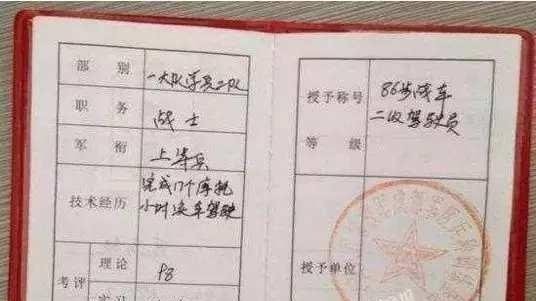 部别 一大队学员二队
职务 战士
军衔 上等兵
技术经历 完成17个摩托
小时实车驾驶
考评 理论 98
授予称号 86步战车
等级 二级驾驶员
授予单位